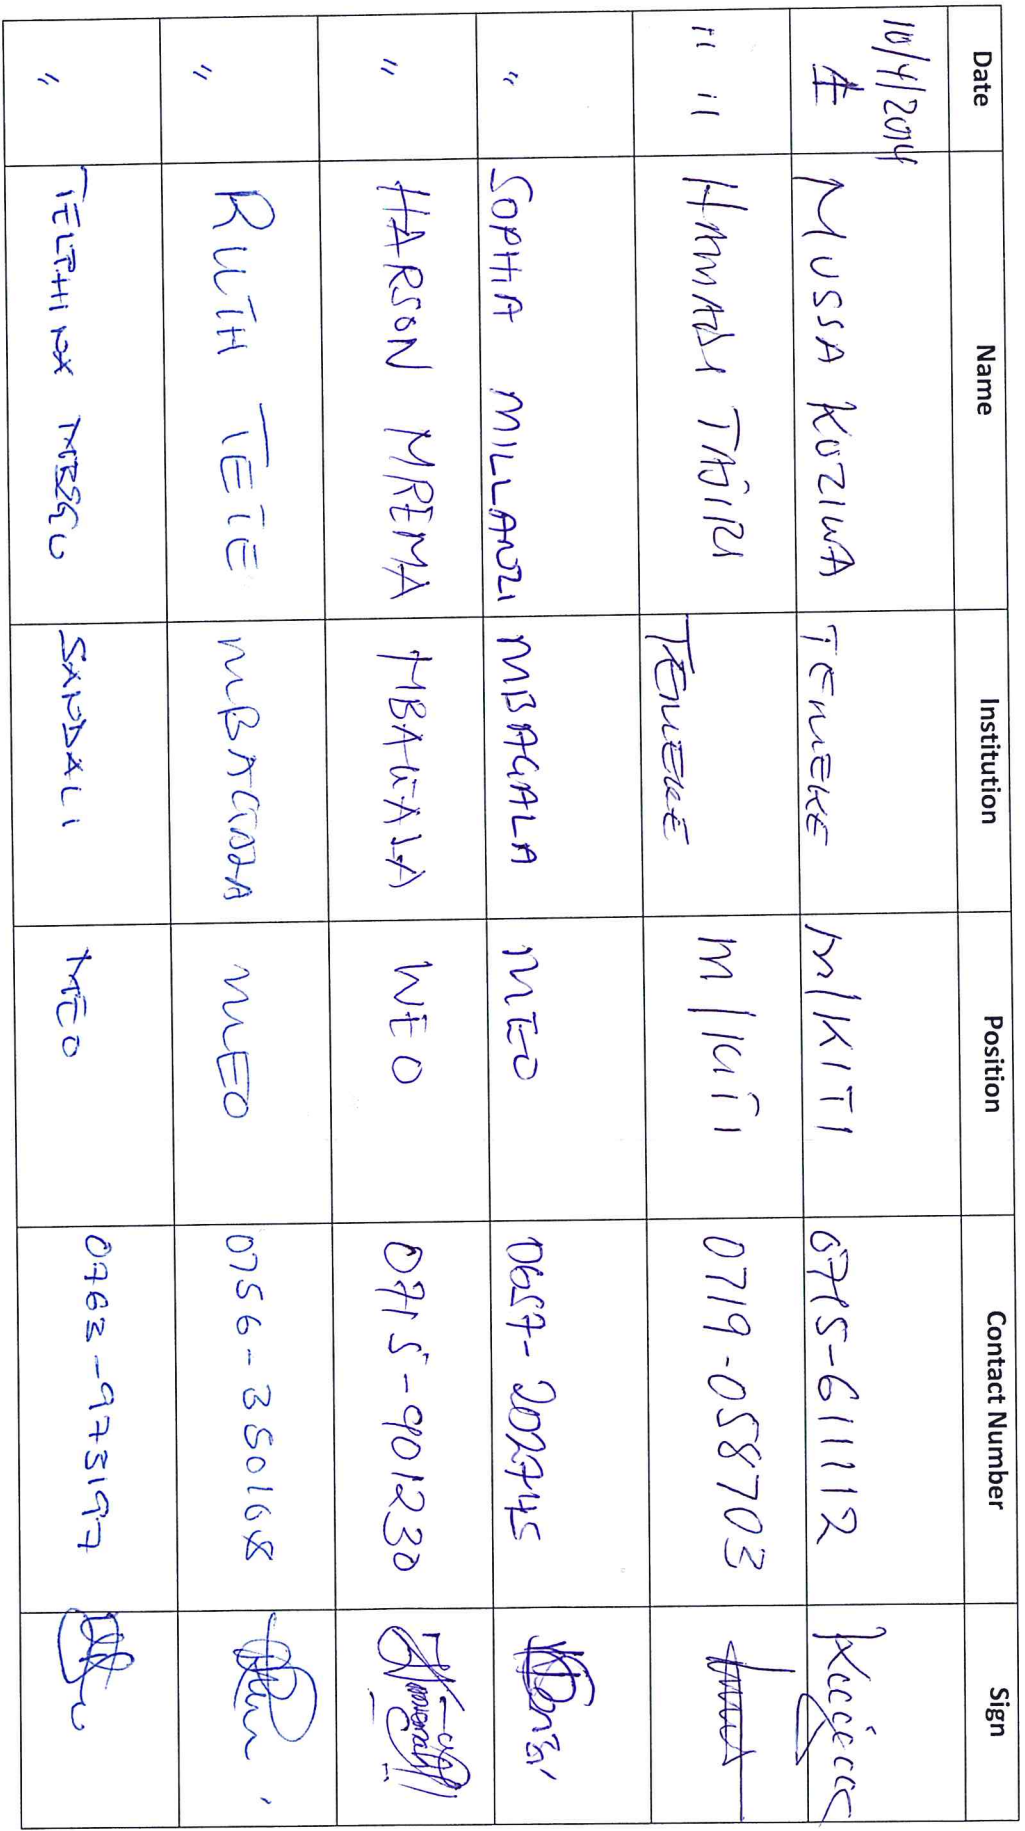 Date Name Institution Position Contact Number Sign
10/4/2014 MUSSA KOZIWA TEMEKE M/KITI 0715-611112
" " HAMADI TAJIRI TEMEKE M/KITI 0719-058703
" SOPHIA MILLANZI MBAGALA MEO 0657-202745
" HARSON MREMA MBAGALA WEO 0715-901230
" RUTH TETE MBAGALA MEO 0756-350168
" SANDALI MEO 0763-973197